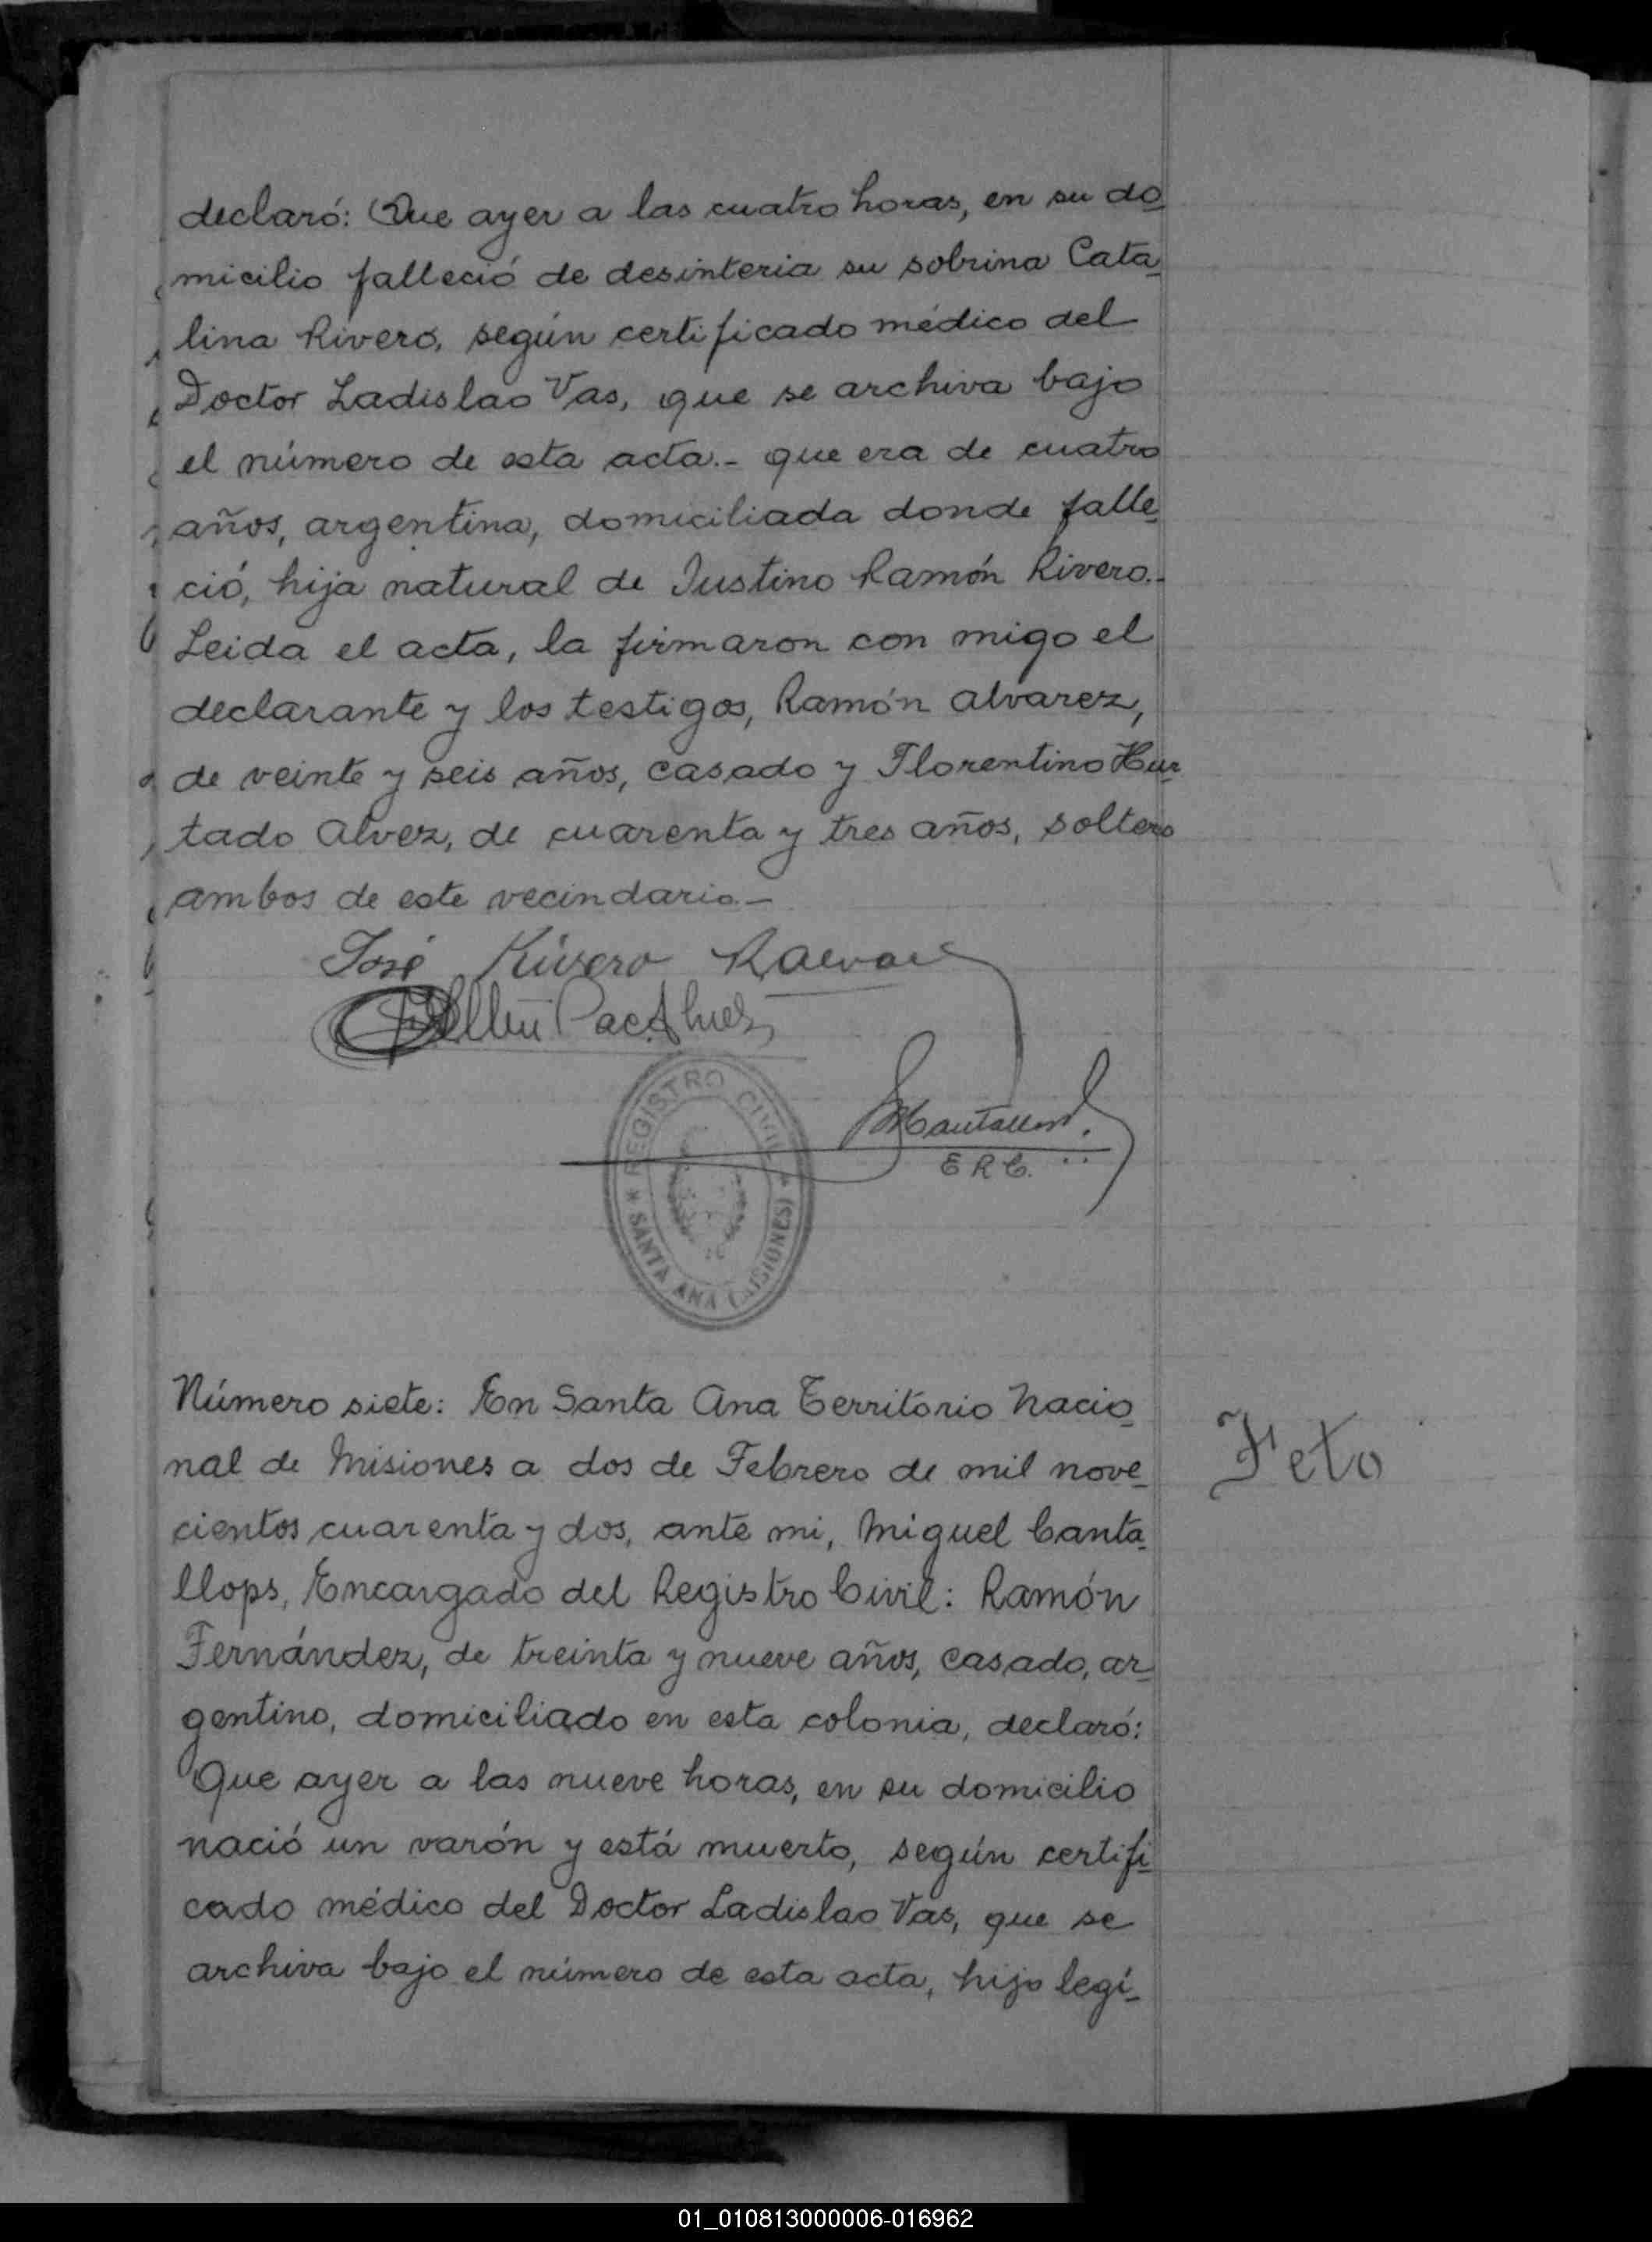 declaró: Que ayer a las cuatro horas, en su do_
micilio falleció de desinteria su sobrina Cata_
lina Rivero, según certificado médico del
Doctor Ladislao Vas, que se archiva bajo
el número de esta acta.- que era de cuatro
años, argentina, domiciliada donde falle_
ció, hija natural de Justino Ramón Rivero.-
Leida el acta, la firmaron con migo el
declarante y los testigos, Ramón Alvarez,
de veinte y seis años, casado y Florentino Hur_
tado Alvez, de cuarenta y tres años, soltero
ambos de este vecindario.-
José Rivero
E R C.
REGISTRO CIVIL * SANTA ANA (MISIONES)
Número siete: En Santa Ana Territorio Nacio_
nal de Misiones a dos de Febrero de mil nove_
cientos cuarenta y dos, ante mi, Miguel Canta_
llops, Encargado del Registro Civil: Ramón
Fernández, de treinta y nueve años, casado, ar_
gentino, domiciliado en esta colonia, declaró:
Que ayer a las nueve horas, en su domicilio
nació un varón y está muerto, según certifi_
cado médico del Doctor Ladislao Vas, que se
archiva bajo el número de esta acta, hijo legí_
Feto
01_010813000006-016962